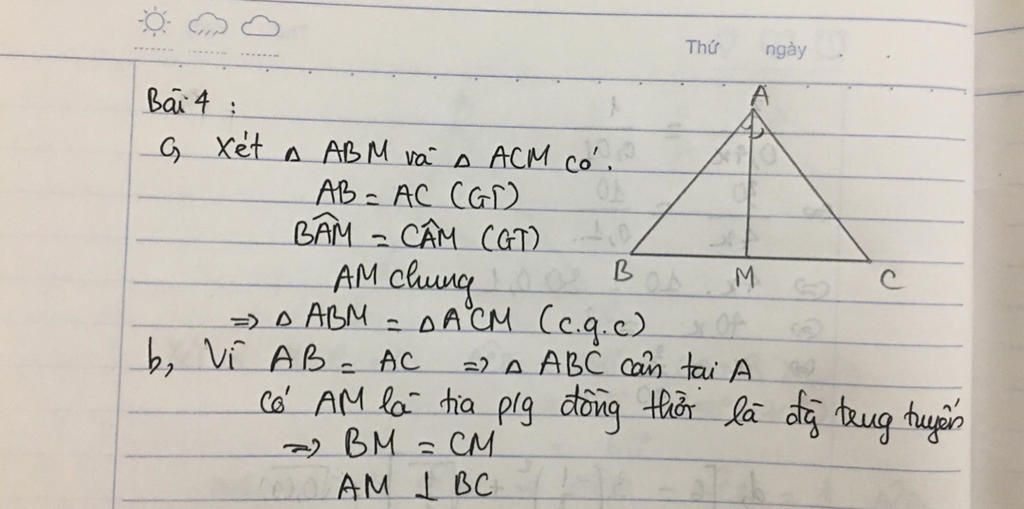 Thứ ngày
Bài 4 :
a, Xét △ ABM và △ ACM có.
AB = AC (GT)
BÂM = CÂM (GT)
AM chung
=> △ ABM = △ ACM (c.g.c)
b, Vì AB = AC => △ ABC cân tại A
có AM là tia p/g đồng thời là đg trung tuyến
=> BM = CM
AM ⊥ BC
A
B
M
C